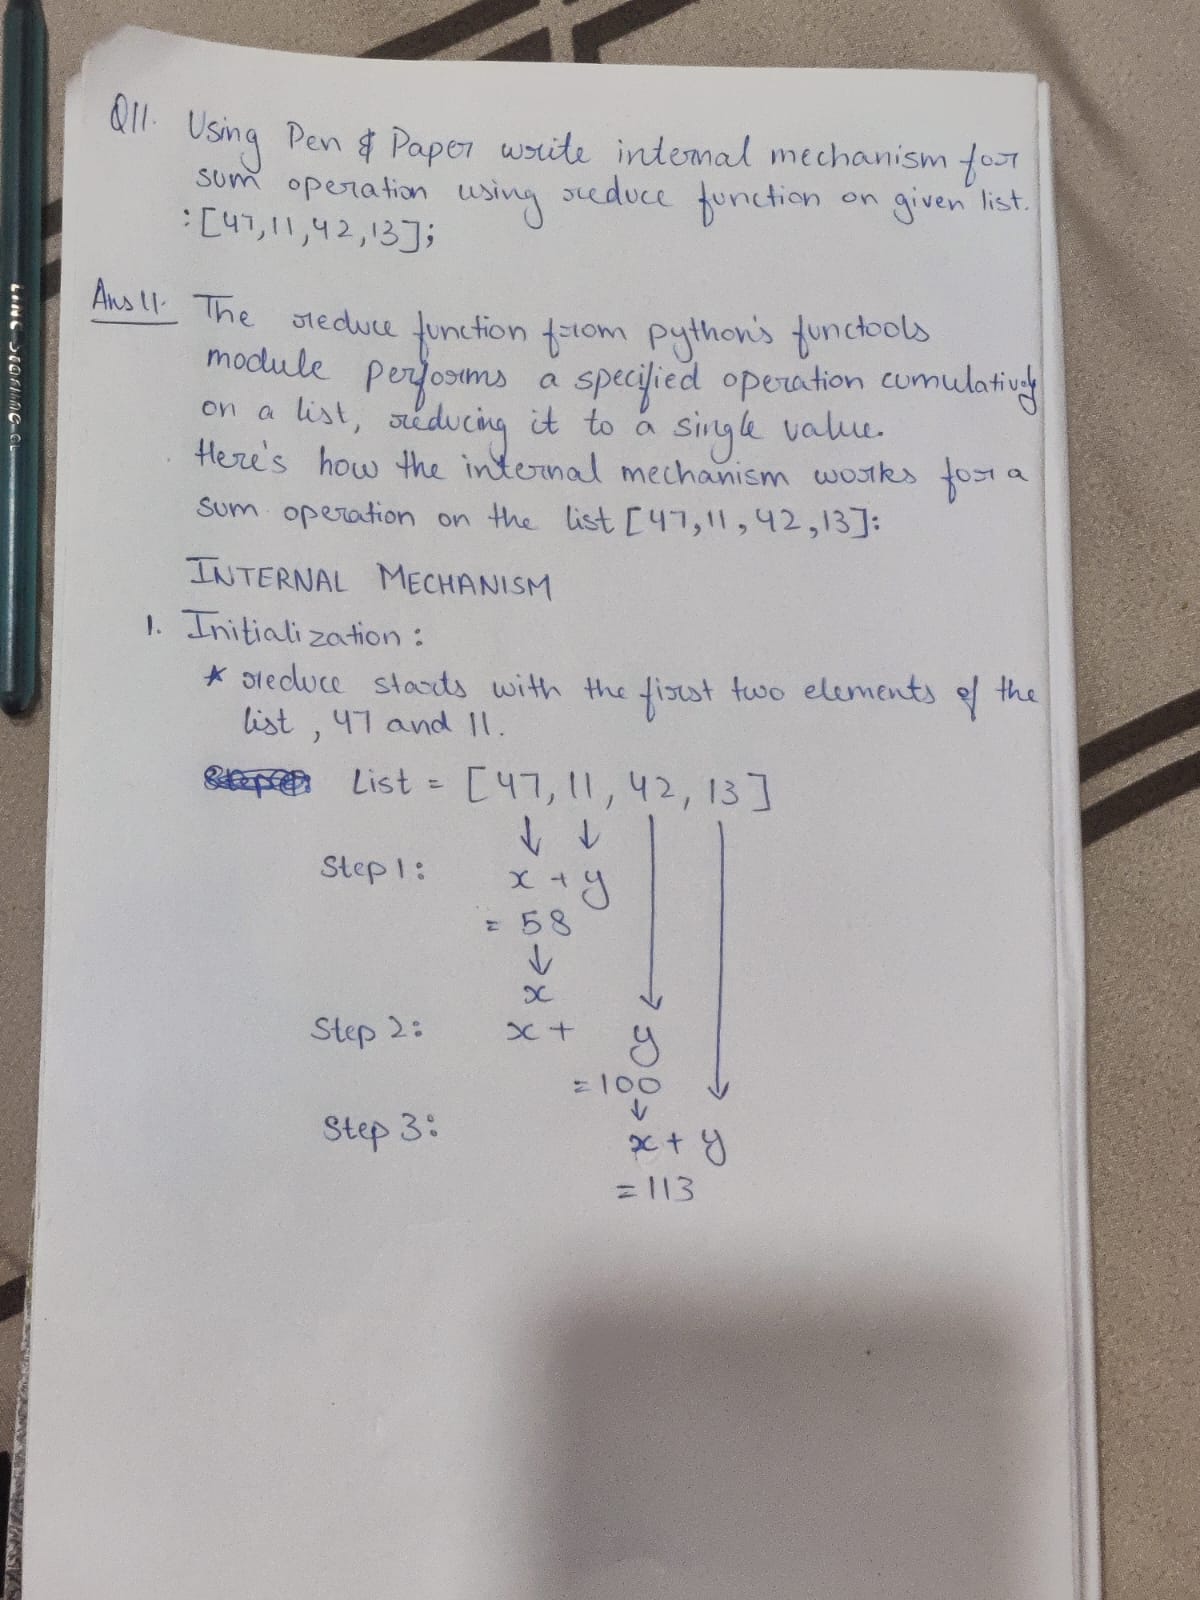 Q11. Using Pen & Paper write internal mechanism for
sum operation using reduce function on given list.
:[47,11,42,13];
Ans 11. The reduce function from python's functools
module performs a specified operation cumulatively
on a list, reducing it to a single value.
Here's how the internal mechanism works for a
sum operation on the list [47,11,42,13]:
INTERNAL MECHANISM
1. Initialization:
* reduce starts with the first two elements of the
list, 47 and 11.
List = [47,11,42,13]
↓ ↓
Step 1: x + y
= 58
↓
x
Step 2: x + y
=100
↓
Step 3: x + y
=113